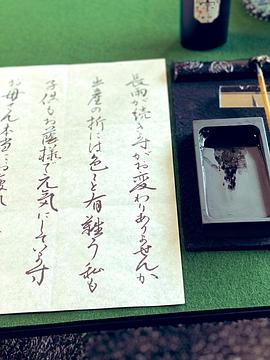 長雨が続きますがお変わりありませんか
出産の折には色々と有難う 私も
子供もお蔭様で元気にしています
お母さん本当にお疲れ